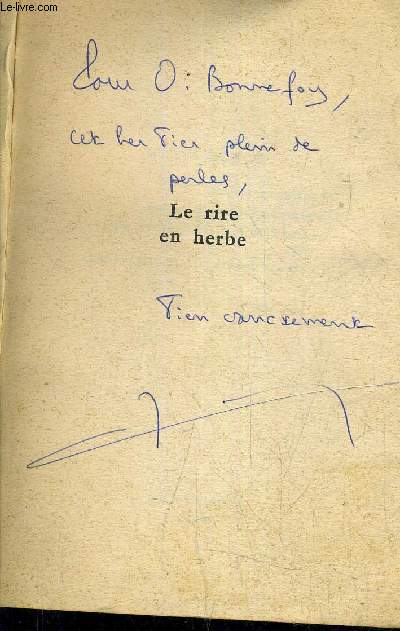 © Le-livre.com
Pour O. Bonnefoy,
cet herbier plein de
perles,
Le rire
en herbe
Bien amicalement